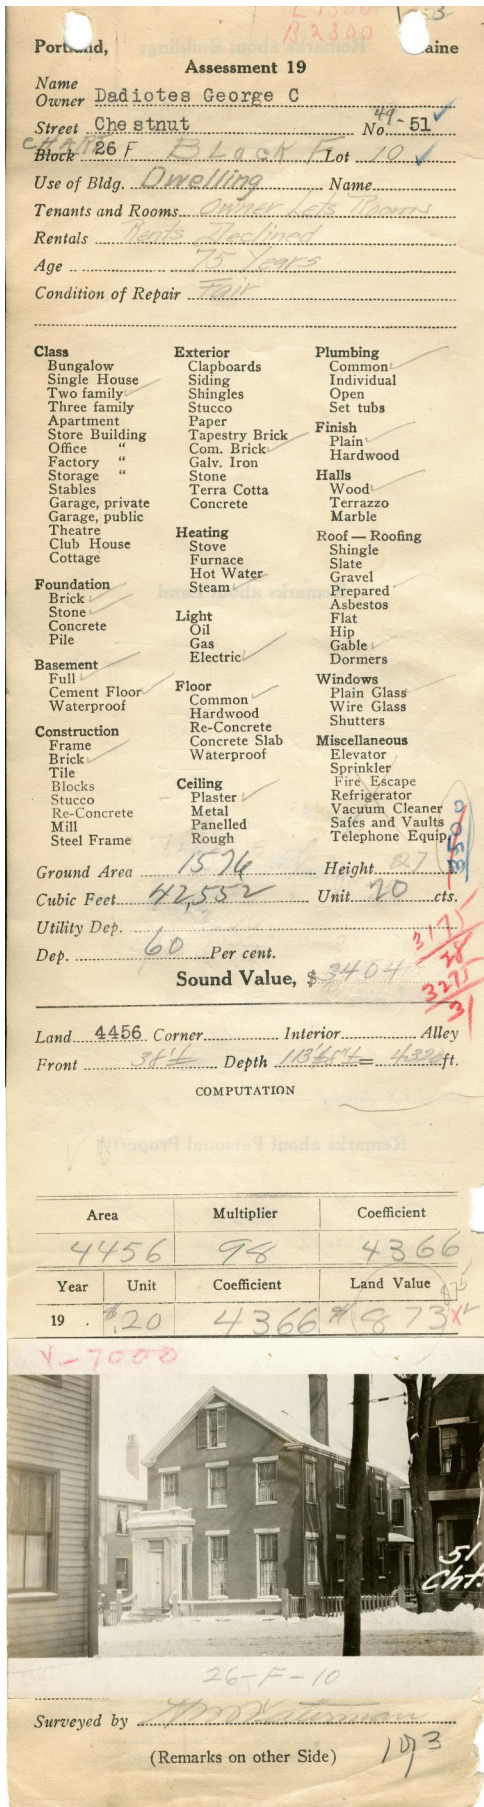 L 1500
B 2300
Portland, Maine
Assessment 19
Name
Owner Dadiotes George C
Street Chestnut No. 49-51
CHART
Block 26 F Block F Lot 10
Use of Bldg. Dwelling Name
Tenants and Rooms Owner Lets Rooms
Rentals Rents Declined
Age 75 Years
Condition of Repair Fair
Class
Bungalow
Single House
Two family
Three family
Apartment
Store Building
Office "
Factory "
Storage "
Stables
Garage, private
Garage, public
Theatre
Club House
Cottage
Foundation
Brick
Stone
Concrete
Pile
Basement
Full
Cement Floor
Waterproof
Construction
Frame
Brick
Tile
Blocks
Stucco
Re-Concrete
Mill
Steel Frame
Exterior
Clapboards
Siding
Shingles
Stucco
Paper
Tapestry Brick
Com. Brick
Galv. Iron
Stone
Terra Cotta
Concrete
Heating
Stove
Furnace
Hot Water
Steam
Light
Oil
Gas
Electric
Floor
Common
Hardwood
Re-Concrete
Concrete Slab
Waterproof
Ceiling
Plaster
Metal
Panelled
Rough
Plumbing
Common
Individual
Open
Set tubs
Finish
Plain
Hardwood
Halls
Wood
Terrazzo
Marble
Roof — Roofing
Shingle
Slate
Gravel
Prepared
Asbestos
Flat
Hip
Gable
Dormers
Windows
Plain Glass
Wire Glass
Shutters
Miscellaneous
Elevator
Sprinkler
Fire Escape
Refrigerator
Vacuum Cleaner
Safes and Vaults
Telephone Equip
3500
Ground Area 1576 Height 27
Cubic Feet 42,552 Unit 20 cts.
Utility Dep.
Dep. 60 Per cent.
3175
28
3275
31
Sound Value, $ 3404
Land 4456 Corner Interior Alley
Front 38'± Depth 113'±8"± = 4320 ft.
COMPUTATION
Area Multiplier Coefficient
4456 98 4366
Year Unit Coefficient Land Value
19 . $.20 4366 $873 X
V-7000
51
Cht.
26-F-10
Surveyed by
(Remarks on other Side) 193